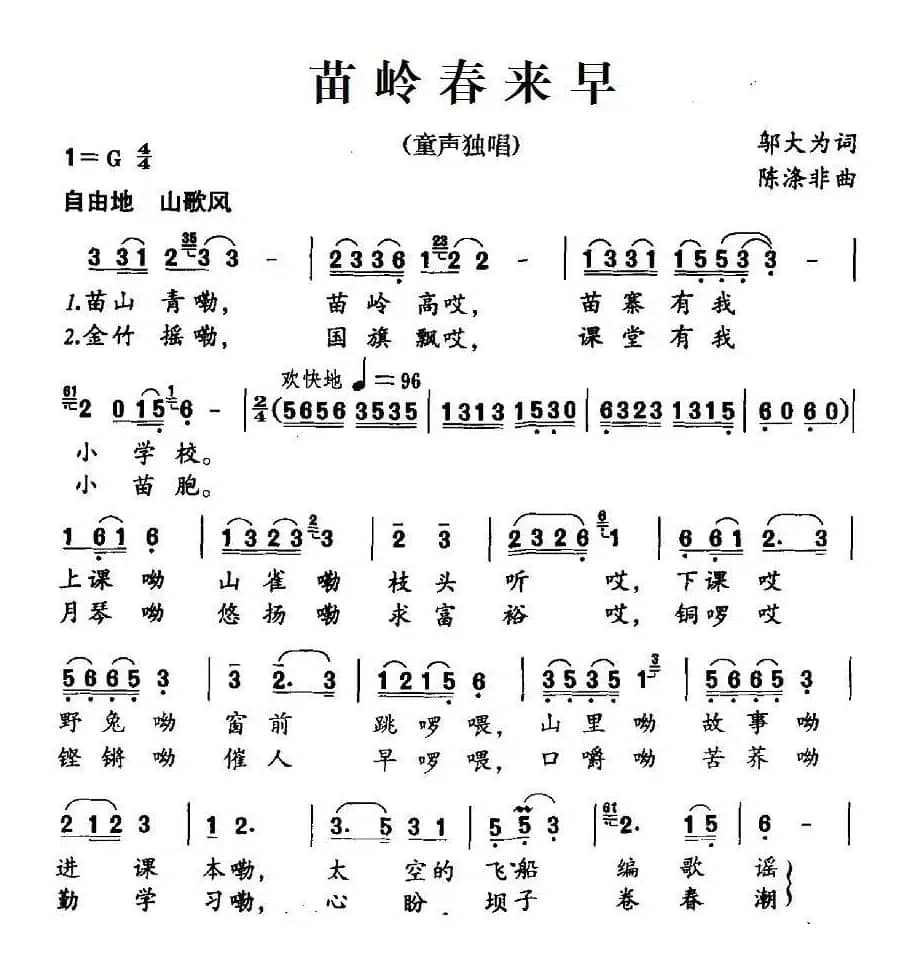 苗岭春来早
(童声独唱)
1=G 4/4
邬大为词
陈涤非曲
自由地 山歌风
3 331 2 35 33 - | 2336 1 23 22 - | 1331 15533 - |
1.苗山 青嘞, 苗岭 高哎, 苗寨有我
2.金竹 摇嘞, 国旗飘哎, 课堂有我
欢快地 ♩=96
61 2 0 15 1 6 - | 2/4 (5656 3535 | 1313 1530 | 6323 1315 | 60 60) |
小 学 校。
小 苗 胞。
1 61 6 | 1323 2 3 | 2 3 | 2326 6 1 | 6 61 2. 3 |
上课呦 山雀嘞 枝头 听 哎, 下课哎
月琴呦 悠扬嘞 求富 裕 哎, 铜啰哎
5665 3 | 3 2. 3 | 1215 6 | 3535 1 3 | 5665 3 |
野兔呦 窗前 跳啰喂, 山里呦 故事呦
铿锵呦 催人 早啰喂, 口嚼呦 苦荞呦
2 12 3 | 1 2. | 3. 5 31 | 5 5 3 | 61 2. 15 | 6 - |
进课 本嘞, 太 空的 飞船 编 歌谣
勤学 习嘞, 心 盼 坝子 卷 春潮